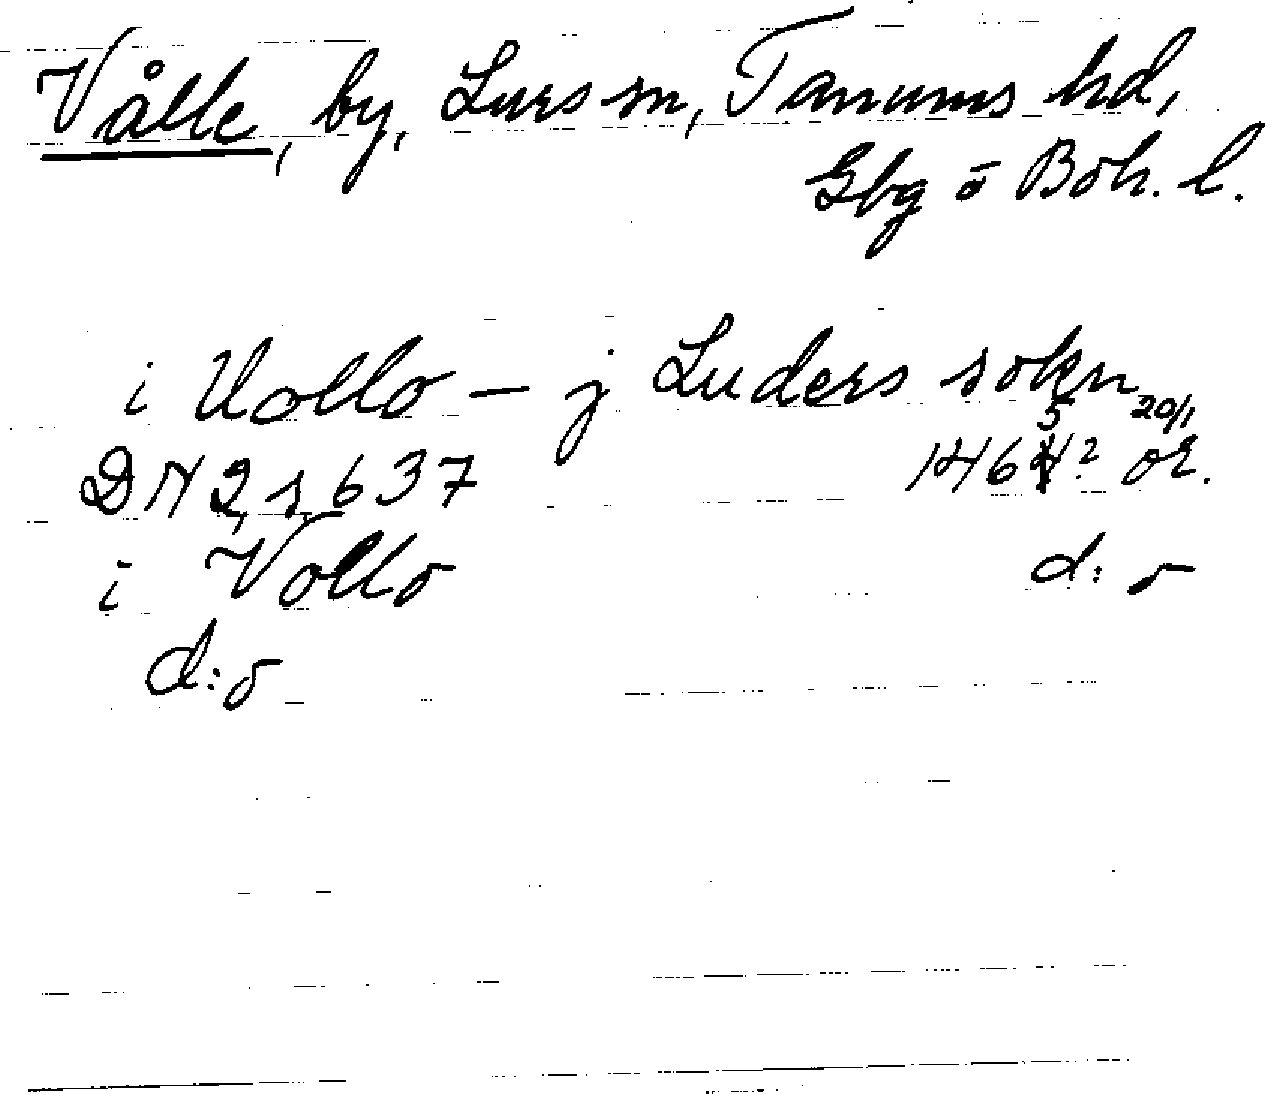 Vålle, by, Lurs sn, Tanums hd,
Gbg o Boh. l.
i Uollo – j Luders sokn
20/1
DN 2, s, 637 1465? or.
i Vollo d:o
d:o